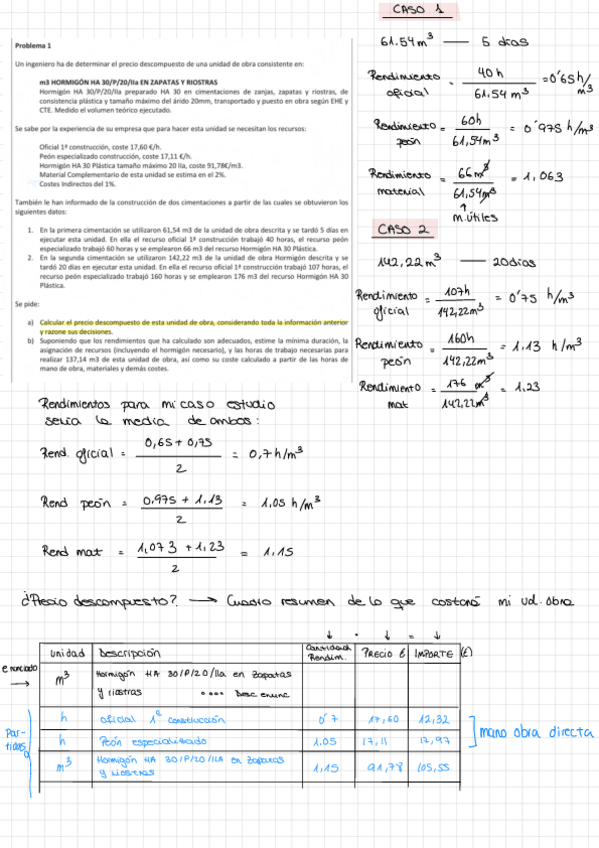 Problema 1
Un ingeniero ha de determinar el precio descompuesto de una unidad de obra consistente en:
m3 HORMIGÓN HA 30/P/20/IIa EN ZAPATAS Y RIOSTRAS
Hormigón HA 30/P/20/IIa preparado HA 30 en cimentaciones de zanjas, zapatas y riostras, de
consistencia plástica y tamaño máximo del árido 20mm, transportado y puesto en obra según EHE y
CTE. Medido el volumen teórico ejecutado.
Se sabe por la experiencia de su empresa que para hacer esta unidad se necesitan los recursos:
Oficial 1ª construcción, coste 17,60 €/h.
Peón especializado construcción, coste 17,11 €/h.
Hormigón HA 30 Plástica tamaño máximo 20 IIa, coste 91,78€/m3.
Material Complementario de esta unidad se estima en el 2%.
Costes Indirectos del 1%.
También le han informado de la construcción de dos cimentaciones a partir de las cuales se obtuvieron los
siguientes datos:
1. En la primera cimentación se utilizaron 61,54 m3 de la unidad de obra descrita y se tardó 5 días en
ejecutar esta unidad. En ella el recurso oficial 1ª construcción trabajó 40 horas, el recurso peón
especializado trabajó 60 horas y se emplearon 66 m3 del recurso Hormigón HA 30 Plástica.
2. En la segunda cimentación se utilizaron 142,22 m3 de la unidad de obra Hormigón descrita y se
tardó 20 días en ejecutar esta unidad. En ella el recurso oficial 1ª construcción trabajó 107 horas, el
recurso peón especializado trabajó 160 horas y se emplearon 176 m3 del recurso Hormigón HA 30
Plástica.
Se pide:
a) Calcular el precio descompuesto de esta unidad de obra, considerando toda la información anterior
y razone sus decisiones.
b) Suponiendo que los rendimientos que ha calculado son adecuados, estime la mínima duración, la
asignación de recursos (incluyendo el hormigón necesario), y las horas de trabajo necesarias para
realizar 137,14 m3 de esta unidad de obra, así como su coste calculado a partir de las horas de
mano de obra, materiales y demás costes.
CASO 1
61.54 m³ — 5 días
Rendimiento oficial = 40h / 61,54 m³ = 0'65 h/m³
Rendimiento peón = 60h / 61,54m³ = 0'975 h/m³
Rendimiento material = 66m³ / 61,54m³ = 1,063
↑
m.útiles
CASO 2
142,22m³ — 20días
Rendimiento oficial = 107h / 142,22m³ = 0'75 h/m³
Rendimiento peón = 160h / 142,22m³ = 1.13 h/m³
Rendimiento mat = 176 m³ / 142,22m³ = 1,23
Rendimientos para mi caso estudio
sería la media de ambos:
Rend. oficial = 0,65 + 0,75 / 2 = 0,7 h/m³
Rend peón = 0.975 + 1.13 / 2 = 1,05 h/m³
Rend mat = 1,073 + 1,23 / 2 = 1.15
¿Precio descompuesto? → Cuadro resumen de lo que costará mi ud. obra
↓ · ↓ = ↓
unidad Descripción Cantidad Rendim. PRECIO € IMPORTE (€)
enunciado → m³ Hormigón HA 30/P/20/IIa en zapatas
y riostras .... Desc enunc
Partidas
h oficial 1ª construcción 0'7 17,60 12,32
h Peón especializado 1.05 17,11 17,97
mano obra directa
m³ Hormigón HA 30/P/20/IIA en zapatas
y riostras 1,15 91,78 105,55